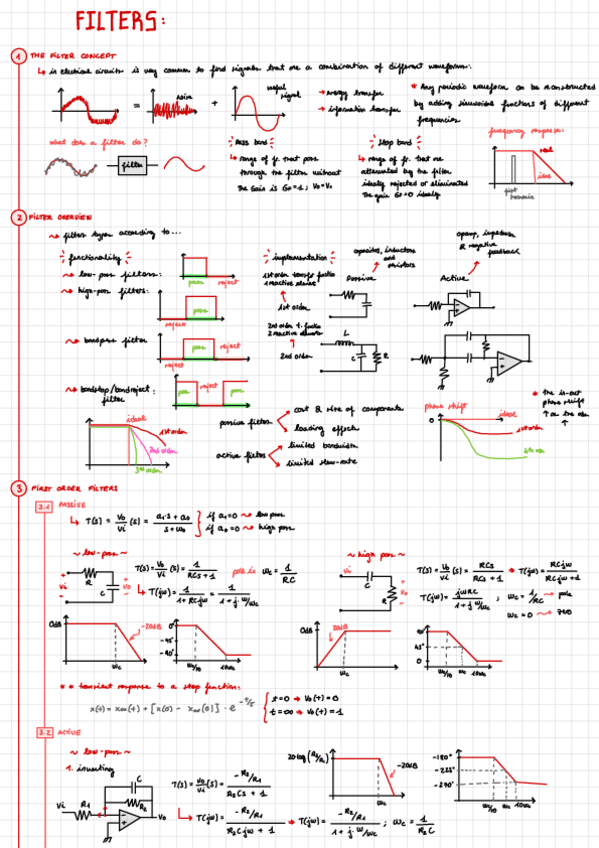 FILTERS:
1 THE FILTER CONCEPT
↳ in electrical circuits is very common to find signals that are a combination of different waveforms:
= noise + useful signal
→ energy transfer
→ information transfer
* Any periodic waveform can be reconstructed
by adding sinusoidal functions of different
frequencies
what does a filter do?
filter
Pass band
↳ range of fr. that pass
through the filter without
the Gain is G=1; Vo=Vi
Stop band
↳ range of fr. that are
attenuated by the filter
ideally rejected or eliminated
the gain G=0 ideally
frequency response:
real
ideal
first
harmonic
2 FILTER OVERVIEW
↝ filter types according to...
functionality
↝ low-pass filters:
pass reject
↝ high-pass filters:
pass
reject
↝ bandpass filter
pass reject
reject
↝ bandstop/bandreject:
filter
pass reject pass
implementation
1st order transf. function
1 reactive element
1st order
2nd order t. function
2 reactive elements
2nd order
capacitors, inductors
and
resistors
Passive
L
C
R
opamp, impedance
& negative
feedback
Active
ideal
1st order
2nd order
3rd order
passive filter
cost & size of components
loading effects
active filter
limited bandwidth
limited slew-rate
phase shift
0
ideal
1st order
* the in-out
phase shift
↑ as the order
↑
3 FIRST ORDER FILTERS
3.1 PASSIVE
↳ T(s) = Vo/Vi (s) = (a1·s + a0)/(s + ω0)
if a1=0 ↝ low pass
if a0=0 ↝ high pass
~ low-pass ~
+ Vi - R C + Vo -
T(s) = Vo/Vi (s) = 1/(RCs + 1)
pole is ωc = 1/RC
↳ T(jω) = 1/(1+RCjω) = 1/(1+j ω/ωc)
0dB -20dB ωc
0° -45° -90° ωc/10 ωc 10ωc
~ high pass ~
+ Vi - C R + Vo -
T(s) = Vo/Vi (s) = RCs/(RCs + 1) → T(jω) = RCjω/(RCjω+1)
T(jω) = jωRC/(1+j ω/ωc) ; ωc = 1/RC → pole
ωc = 0 → zero
0dB 20dB ωc
90° 45° 0 ωc/10 ωc 10ωc
** transient response to a step function:
x(t) = x∞(t) + [x(0) - x∞(0)] · e^-t/τ
t=0 → Vo(t) = 0
t=∞ → Vo(t) = 1
3.2 ACTIVE
~ low-pass ~
1. inverting
Vi R1 C R2 Vo
T(s) = Vo/Vi (s) = (-R2/R1)/(R2Cs + 1)
↳ T(jω) = (-R2/R1)/(R2Cjω + 1) → T(jω) = (-R2/R1)/(1+j ω/ωc) ; ωc = 1/R2C
20log(R2/R1) -20dB ωc
-180° -225° -270° ωc/10 ωc 10ωc